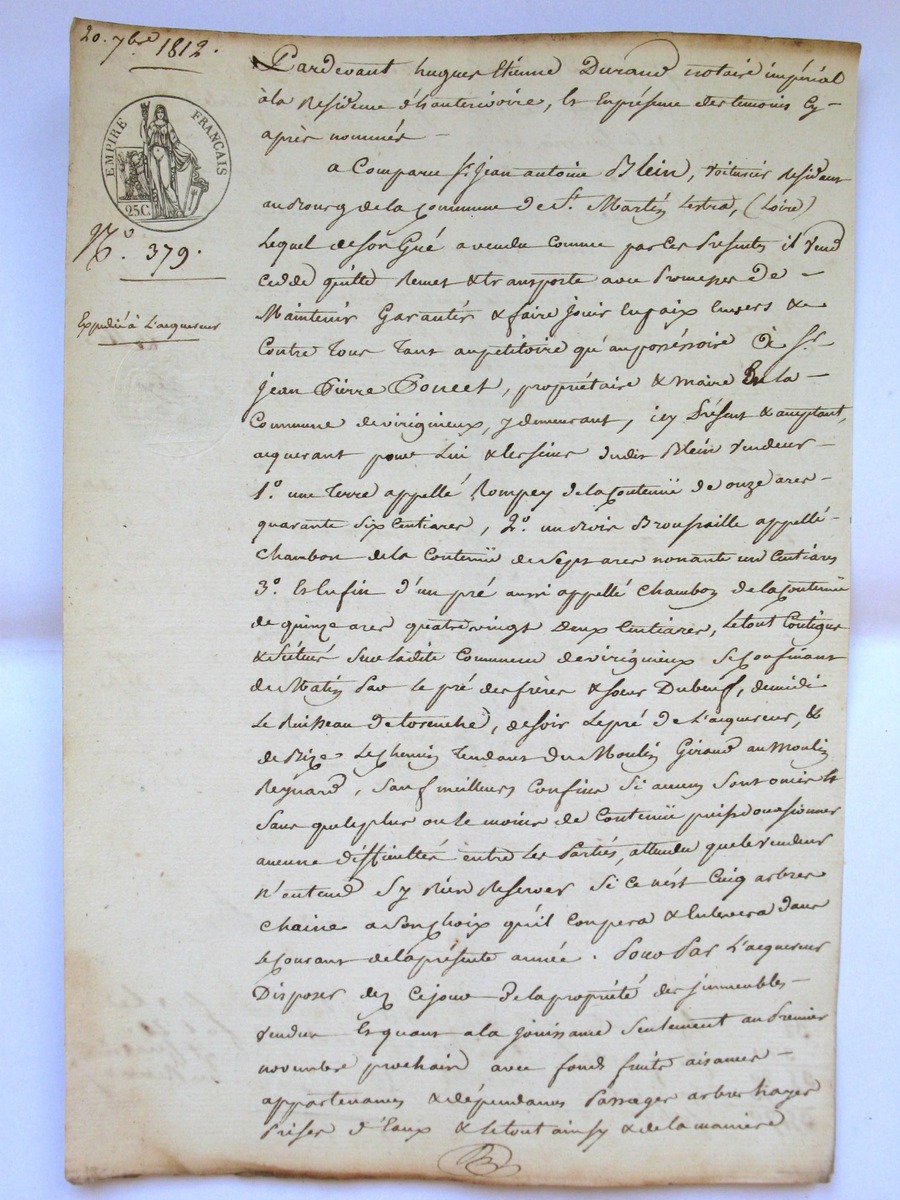 20. 7bre 1812.
EMPIRE FRANÇAIS
25C.
No. 379.
Expédié à L'acquereur
Pardevant hugues Etienne Durand notaire impérial
à la Residence d'hauterivoire, Et En présence des temoins Cy-
après nommés —
a Comparu Sr. jean antoine Blein, voiturier Residant
au Bourg de la Commune de St. Martin Lestra, (Loire)
Lequel de son Gré a vendu Comme par Ces Presentes il vend
Cedde quitte Remet & transporte avec Promesses de —
Maintenir Garantir & faire jouir En paix Envers &
Contre Tous Tant au pétitoire qu'au posséssoire à Sr.
jean Pierre Poncet, propriétaire & maire de la —
Commune de virigineux, y demeurant, icy Présent & acceptant,
acquerant pour Lui & les siens dudit Blein vendeur —
1o. une Terre appellé Rompey de la Contenüe de onze ares —
quarante six Centiares, 2o. un Bois Broussaille appellé —
Chambon de la Contenüe de sept ares nonante un Centiares
3o. Et Enfin d'un pré aussi appellé Chambon de la Contenüe
de quinze ares quatre vingt Deux Centiares, Le tout Contigue
& Situés sur ladite Commune de virigineux se Confinant
de Matin Par Le pré des frères & soeur Dubeuf, de midi
Le Ruisseau de , de soir Le pré de L'acquereur, &
de Bize Le chemin Tendant du Moulin Giraud au Moulin
Reynard, Sauf meilleurs Confins Si aucuns Sont omis Et
Sans que le plus ou le moins de Contenüe puisse occasionner
aucune difficultés entre Les Parties, attendu que le vendeur
N'entend S'y Rien Reserver Si ce n'est Cinq arbres
chaine a son choix qu'il Coupera & Enlevera dans
le Courant de la présente année. Pour Par L'acquereur
Disposer dez Ce jour de la propriété des jmmeubles —
vendus Et quant a la jouissance Seulement au Premier
novembre prochain avec fonds fruits aisances —
appartenances & dépendances Passages arbres hayes
Prises d'Eaux & le tout ainsy & de la maniere